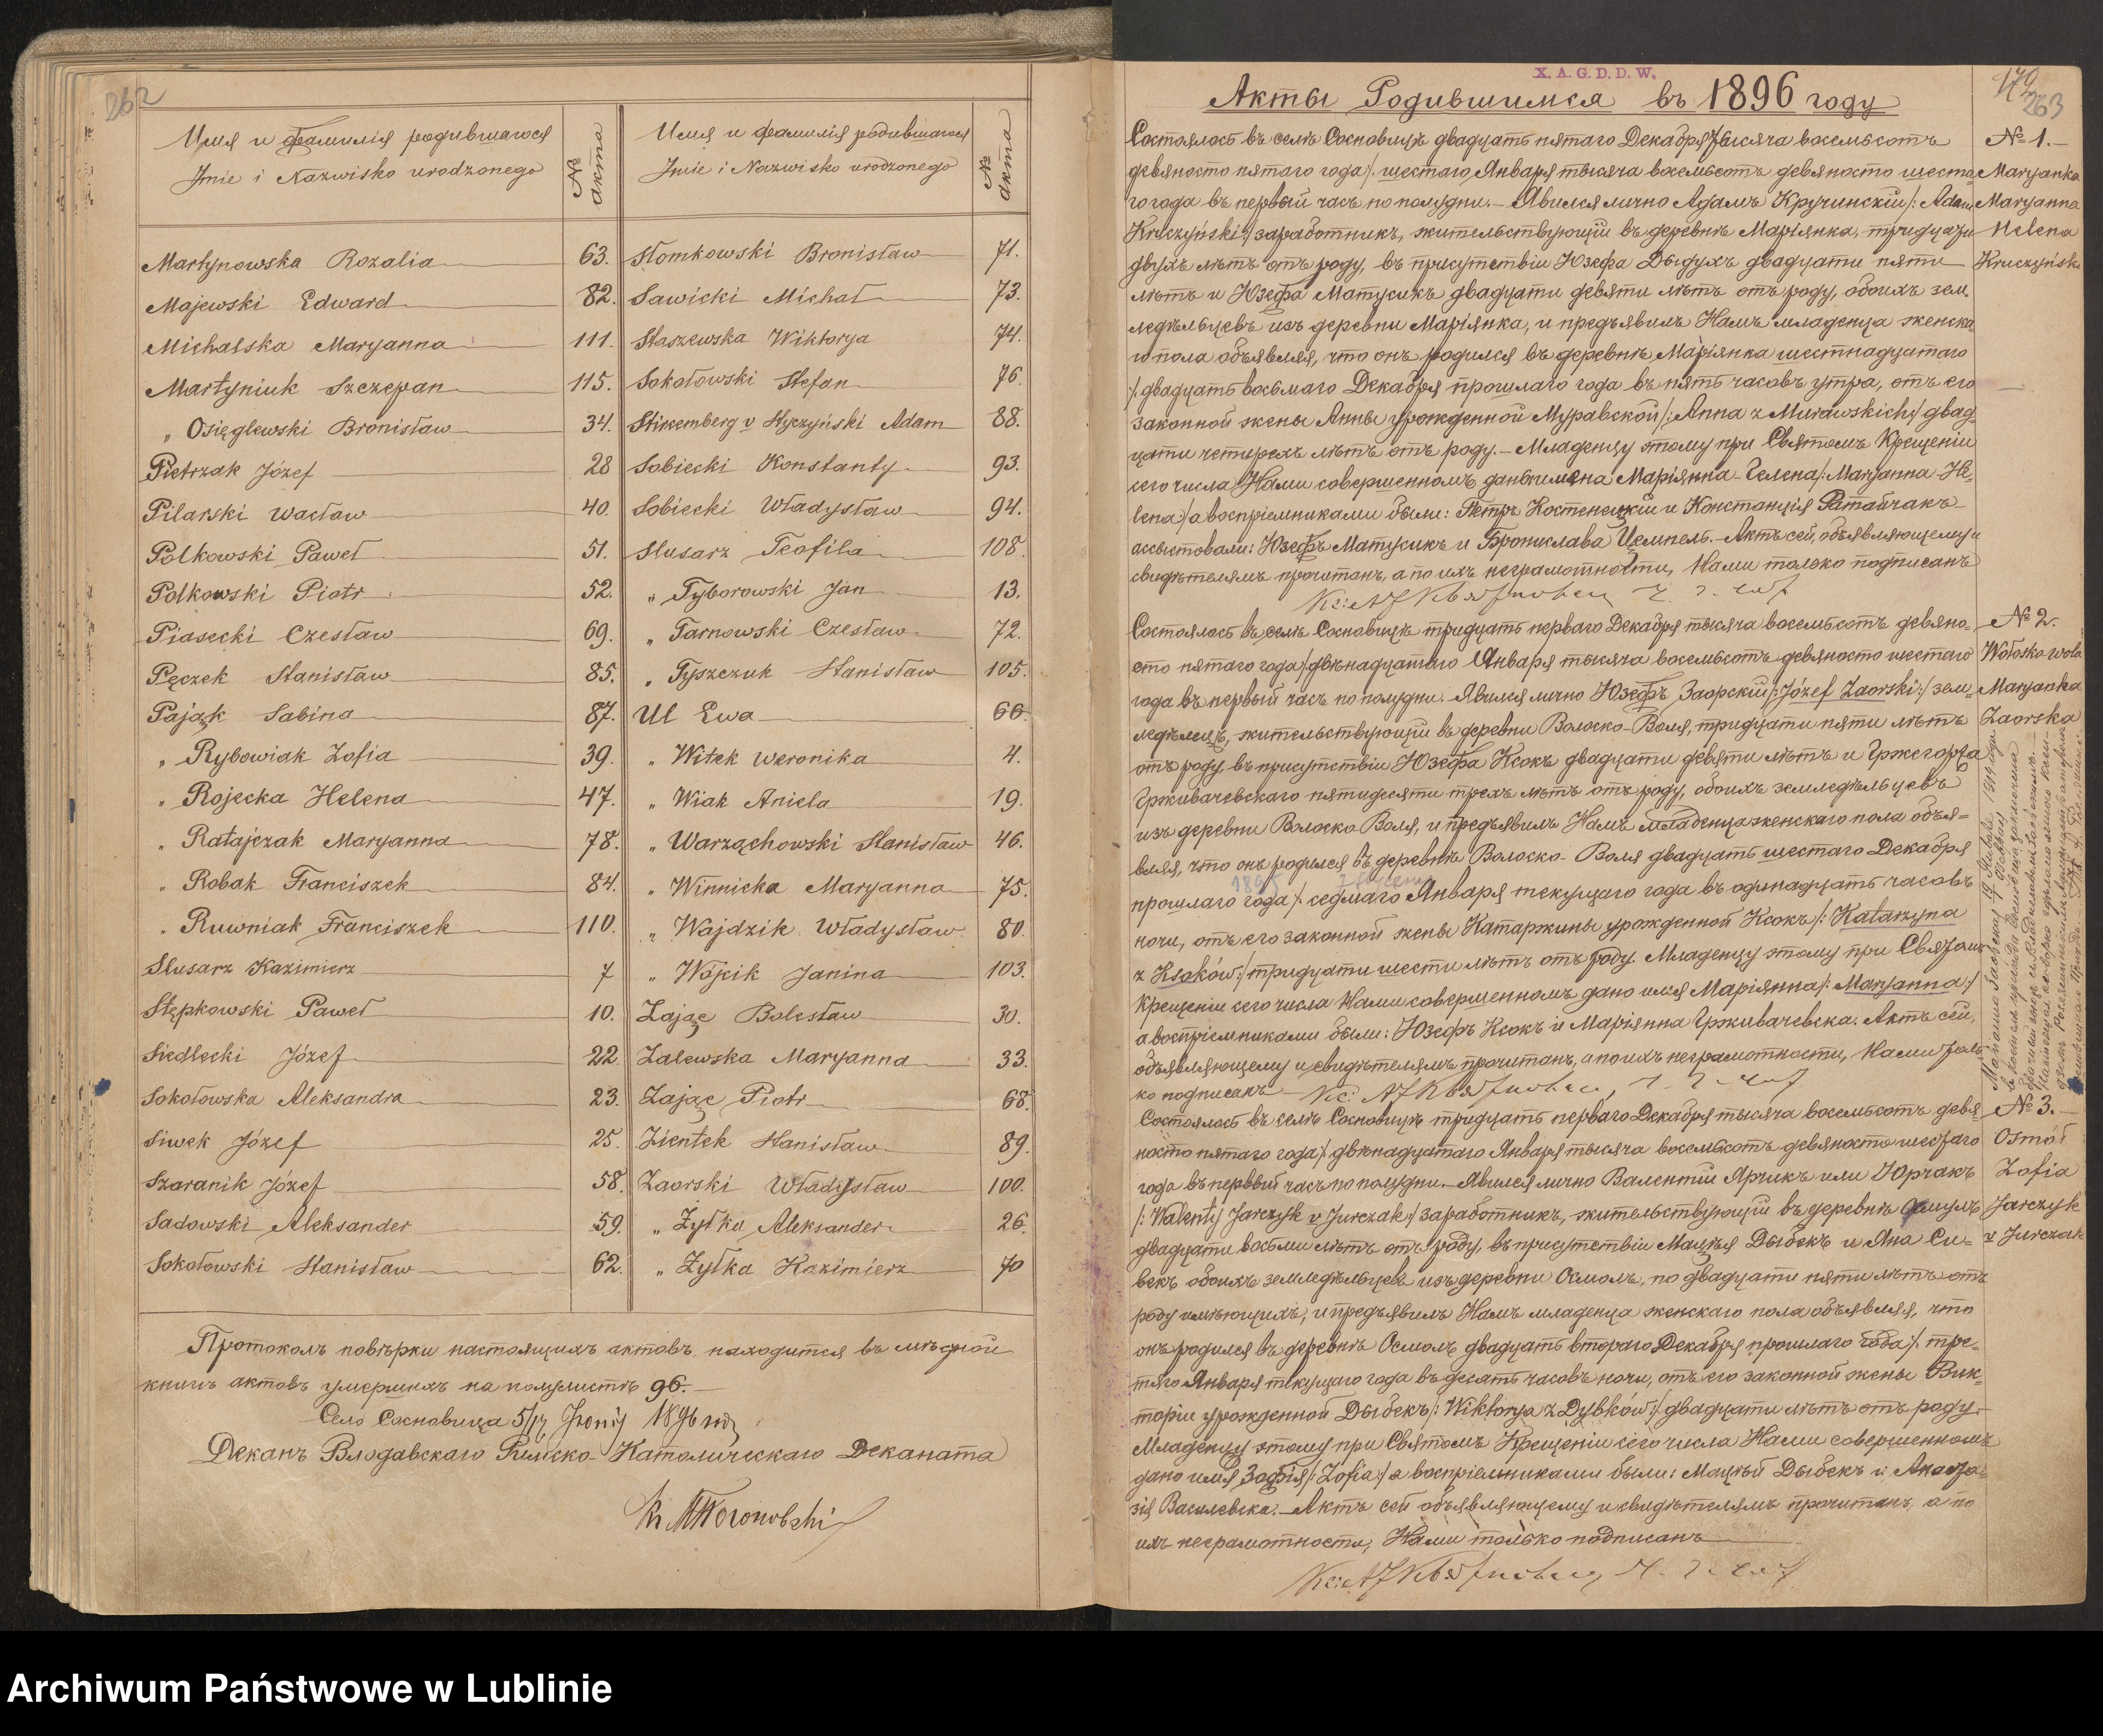 262
Имя и фамилія родившагося
Imie i Nazwisko urodzonego
№ акта
Martynowska Rozalia 63.
Majewski Edward 82.
Michalska Maryanna 111.
Martyniuk Szczepan 115.
„ Osięglewski Bronisław 34.
Pietrzak Józef 28
Pilarski Wacław 40.
Polkowski Paweł 51.
Polkowski Piotr 52.
Piasecki Czesław 69.
Pęczek Stanisław 85.
Pająk Sabina 87.
„ Rybowiak Zofia 39.
„ Rojecka Helena 47.
„ Ratajczak Maryanna 78.
„ Robak Franciszek 84.
„ Ruwniak Franciszek 110.
Slusarz Kazimierz 7
Stępkowski Paweł 10.
Siedlecki Józef 22
Sokołowska Aleksandra 23.
Siwek Józef 25.
Szaranik Józef 58.
Sadowski Aleksander 59.
Sokołowski Stanisław 62.
Имя и фамилія родившагося
Imie i Nazwisko urodzonego
№ акта
Słomkowski Bronisław 71.
Sawicki Michał 73.
Staszewska Wiktorya 74.
Sokołowski Stefan 76.
v Styczyński Adam 88.
Sobiecki Konstanty 93.
Sobiecki Władysław 94.
Slusarz Teofila 108.
„ Tyborowski Jan 13.
„ Tarnowski Czesław 72.
„ Tyszczuk Stanisław 105.
Ul Ewa 66.
„ Witek Weronika 4.
„ Wiak Aniela 19.
„ Warząchowski Stanisław 46.
„ Winnicka Maryanna 75.
„ Wajdzik Władysław 80.
„ Wójcik Janina 103.
Zając Bolesław 30.
Zalewska Maryanna 33.
Zając Piotr 68.
Zientek Stanisław 89.
Zaorski Władysław 100.
„ Żyłka Aleksander 26.
„ Żyłka Kazimierz 70
Протоколъ повѣрки настоящихъ актовъ находится въ
книгѣ актовъ умершихъ на 96.
Село Сосновица 5/17 1896
Деканъ Влодавскаго Римско-Католическаго Деканата
X. A. G. D. D. W.
170
263
Акты Родившимся въ 1896 году
№ 1.
Maryanka
Maryanna
Helena
Kruczyńska
Состоялось въ селѣ Сосновицѣ двадцать пятаго Декабря тысяча восемьсотъ
девяносто пятаго года /: шестаго Января тысяча восемьсотъ девяносто шеста-
го года въ первый часъ по полудни. – Явился лично Адамъ Кручинскій /: Adam
Kruczyński :/ заработникъ, жительствующій въ деревнѣ Маріянка, тридцати
двухъ лѣтъ отъ роду, въ присутствіи Юзефа Дыдухъ двадцати пяти
лѣтъ и Юзефа Матусикъ двадцати девяти лѣтъ отъ роду, обоихъ зем-
ледѣльцевъ изъ деревни Маріянка, и предъявилъ Намъ младенца женска-
го пола объявляя, что онъ родился въ деревнѣ Маріянка шестнадцатаго
/: двадцать восьмаго Декабря прошлаго года въ пять часовъ утра, отъ его
законной жены Анны урожденной Муравской /: Anna z Murawskich :/ двад-
цати четырехъ лѣтъ отъ роду. – Младенцу этому при Святомъ Крещеніи
сего числа Нами совершенномъ даны имена Маріянна-Гелена /: Maryanna-He-
lena :/ а воспріемниками были: Петръ и Констанція
ассыстовали: Юзефъ Матусикъ и Бронислава – Актъ сей, объявляющему и
свидѣтелямъ прочитанъ, а по ихъ неграмотности, Нами только подписанъ
№ 2.
Wołosko wola
Maryanka
Zaorska
Состоялось въ селѣ Сосновицѣ тридцать перваго Декабря тысяча восемьсотъ девяно-
сто пятаго года /: двѣнадцатаго Января тысяча восемьсотъ девяносто шестаго
года въ первый часъ по полудни. Явился лично Юзефъ Заорскій /: Józef Zaorski :/ зем-
ледѣлецъ, жительствующій въ деревни Волоско-Воля, тридцати пяти лѣтъ
отъ роду, въ присутствіи Юзефа Ксокъ двадцати девяти лѣтъ и Гржегоржа
Грживачевскаго пятидесяти трехъ лѣтъ отъ роду, обоихъ земледѣльцевъ
изъ деревни Волоско Воля, и предъявилъ Намъ младенца женскаго пола объя-
вляя, что онъ родился въ деревнѣ Волоско-Воля двадцать шестаго Декабря
прошлаго года /: седмаго Января текущаго года въ одинадцать часовъ
ночи, отъ его законной жены Катаржины урожденной Ксокъ /: Katarzyna
z Ksoków :/ тридцати шести лѣтъ отъ роду. Младенцу этому при Святомъ
Крещеніи сего числа Нами совершенномъ дано имя Маріянна /: Maryanna :/
а воспріемниками были: Юзефъ Ксокъ и Маріянна Грживачевска. Актъ сей,
объявляющему и свидѣтелямъ прочитанъ, а по ихъ неграмотности, Нами толь-
ко подписанъ
№ 3.
Osmół
Zofia
Jarczyk
v Jurczak
Состоялось въ селѣ Сосновицѣ тридцать перваго Декабря тысяча восемьсотъ девя-
носто пятаго года /: двѣнадцатаго Января тысяча восемьсотъ девяносто шестаго
года въ первый часъ по полудни. – Явился лично Валентій Ярчикъ или Юрчакъ
/: Walenty Jarczyk v Jurczak :/ заработникъ, жительствующій въ деревнѣ Осмулъ
двадцати восьми лѣтъ отъ роду, въ присутствіи Мацѣя Дыбекъ и Яна Си-
векъ обоихъ земледѣльцевъ изъ деревни Осмолъ, по двадцати пяти лѣтъ отъ
роду имѣющихъ, и предъявилъ Намъ младенца женскаго пола объявляя, что
онъ родился въ деревнѣ Осмолъ двадцать втораго Декабря прошлаго года /: тре-
тяго Января текущаго года въ десять часовъ ночи, отъ его законной жены Вик-
торіи урожденной Дыбекъ /: Wiktorya z Dybków :/ двадцати лѣтъ отъ роду. –
Младенцу этому при Святомъ Крещеніи сего числа Нами совершенномъ
дано имя Зофія /: Zofia :/ а воспріемниками были: Мацѣй Дыбекъ и Анаста-
зія Василевска. – Актъ сей объявляющему и свидѣтелямъ прочитанъ, а по
ихъ неграмотности, Нами только подписанъ
Archiwum Państwowe w Lublinie